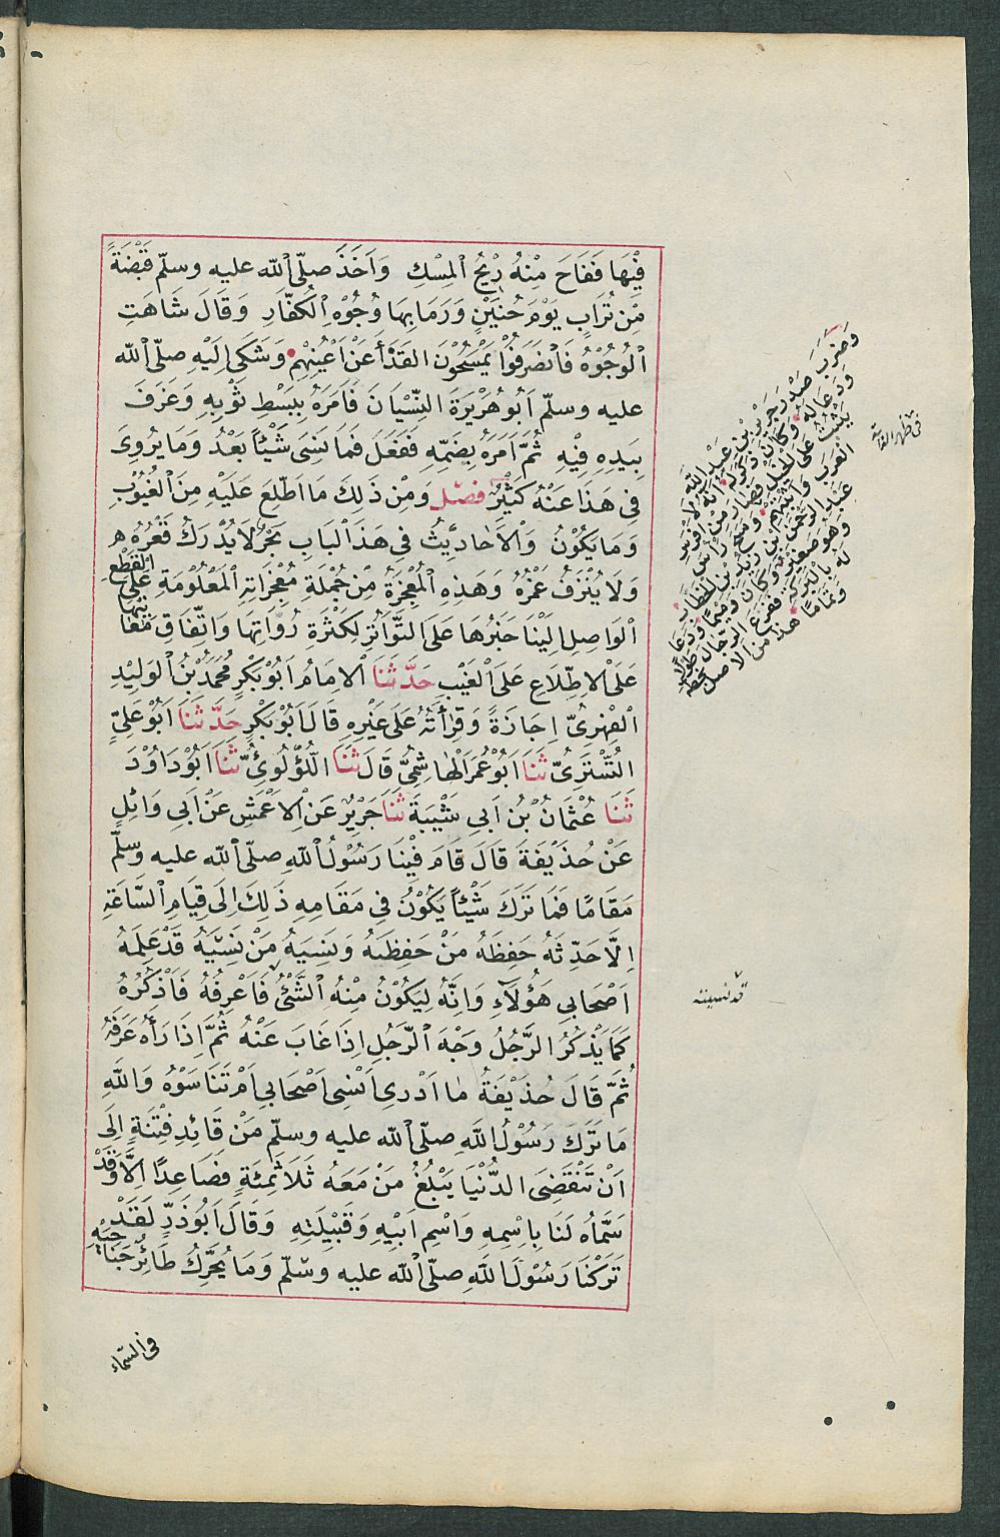 فِيْهَا فَفَاحَ مِنْهُ رِيْحُ الْمِسْكِ وَاَخَذَ صلّى الله عليه وسلّم قَبْضَةً
مِنْ تُرَابٍ يَوْمَ حُنَيْنٍ وَرَمَا بِهَا وُجُوْهَ الْكُفَّارِ وَقَالَ شَاهَتِ
الْوُجُوْهُ فَانْصَرَفُوْا يَمْسَحُوْنَ القَذَا عَنْ اَعْيُنِهِمْ وَشَكَى اِلَيْهِ صلّى الله
عليه وسلّم اَبُوهُرَيْرَةَ النِّسْيَانَ فَاَمَرَهُ بِبَسْطِ ثَوْبِهِ وَغَرَفَ
بِيَدِهِ فِيْهِ ثُمَّ اَمَرَهُ بِضَمِّهِ فَفَعَلَ فَمَا نَسِىَ شَيْئًا بَعْدُ وَمَا يُرْوِىَ
فى هَذَا عَنْهُ كَثِيْرٌ فصل وَمِنْ ذَلِكَ مَا اطَّلِعَ عَلَيْهِ مِنَ الْغُيُوْبِ
وَمَا يَكُوْنُ وَالْاَحَادِيْثُ فى هَذَا الْبَابِ بَحْرٌ لَا يُدْرَكُ قَعْرُهُ
وَلَا يُنْزَفُ غَمْرُهُ وَهَذِهِ الْمُعْجِزَةُ مِنْ جُمْلَةِ مُعْجِزَاتِهِ الْمَعْلُوْمَةِ عَلَى القَطْعِ
الْوَاصِلِ اِلَيْنَا خَبَرُهَا عَلَى التَّوَاتُرِ لِكَثْرَةِ رُوَاتِهَا وَاتِّفَاقِ مَعَانِيْهَا
عَلَى الْاِطِّلَاعِ عَلَى الْغَيْبِ حَدَّثَنَا الْاِمَامُ اَبُوْبَكْرٍ مُحَمَّدُ بْنُ الْوَلِيْدِ
الْفِهْرِىُّ اِجَازَةً وَقَرَأْتُهُ عَلَى غَيْرِهِ قَالَ اَبُوْبَكْرٍ حَدَّثَنَا اَبُوْعَلِىٍّ
التُّسْتَرِىُّ ثَنَا اَبُوْعُمَرَ الْهَاشِمِىُّ قَالَ ثَنَا اللُّؤْلُوئِىُّ ثَنَا اَبُوْدَاوُدَ
ثَنَا عُثْمَانُ بْنُ اَبى شَيْبَةَ ثَنَا جَرِيْرٌ عَنِ الْاَعْمَشِ عَنْ اَبى وَائِلٍ
عَنْ حُذَيْفَةَ قَالَ قَامَ فِيْنَا رَسُوْلُ اللهِ صلّى الله عليه وسلّم
مَقَامًا فَمَا تَرَكَ شَيْئًا يَكُوْنُ فى مَقَامِهِ ذَلِكَ اِلَى قِيَامِ السَّاعَةِ
اِلَّا حَدَّثَهُ حَفِظَهُ مَنْ حَفِظَهُ وَنَسِيَهُ مَنْ نَسِيَهُ قَدْ عَلِمَهُ
اَصْحَابى هَؤُلَآءِ وَاِنَّهُ لِيَكُوْنُ مِنْهُ الشَّىْءُ فَاَعْرِفُهُ فَاَذْكُرُهُ
كَمَا يَذْكُرُ الرَّجُلُ وَجْهَ الرَّجُلِ اِذَا غَابَ عَنْهُ ثُمَّ اِذَا رَاَهُ عَرَفَهُ
ثُمَّ قَالَ حُذَيْفَةُ مَا اَدْرى اَنَسِىَ اَصْحَابى اَمْ تَنَاسَوْهُ وَاللهِ
مَا تَرَكَ رَسُوْلُ اللهِ صلّى الله عليه وسلّم مَنْ قَائِدِ فِتْنَةٍ اِلَى
اَنْ تَنْقَضِىَ الدُّنْيَا يَبْلُغُ مَنْ مَعَهُ ثَلَاثَمِئَةٍ فَصَاعِدًا اِلَّا وَقَدْ
سَمَّاهُ لَنَا بِاسْمِهِ وَاسْمِ اَبِيْهِ وَقَبِيْلَتِهِ وَقَالَ اَبُوْذَرٍّ لَقَدْ
تَرَكْنَا رَسُوْلَ اللهِ صلّى الله عليه وسلّم وَمَا يُحَرِّكُ طَائِرٌ جَنَاحَيْهِ
فى السّمآء
وَضَرَبَ صَدْرَ جَرِيْرِ بْنِ عَبْدِ اللهِ
وَدَعَا لَهُ وَكَانَ ذَكَرَ لَهُ اَنَّهُ لَا
يَثْبُتُ عَلَى الْخَيْلِ فَصَارَ مِنْ اَفْرَسِ
الْعَرَبِ وَاَثْبَتِهِمْ وَمَسَحَ رَأْسَ
عَبْدِ الرَّحْمَنِ بْنِ زَيْدِ بْنِ الْخَطَّابِ
وَهُوَ صَغِيْرٌ وَكَانَ دَمِيْمًا وَدَعَا
لَهُ بِالْبَرَكَةِ فَفَرَعَ الرِّجَالَ طُوْلًا
وَتَمَامًا هذا من الاصل
قد نسيته